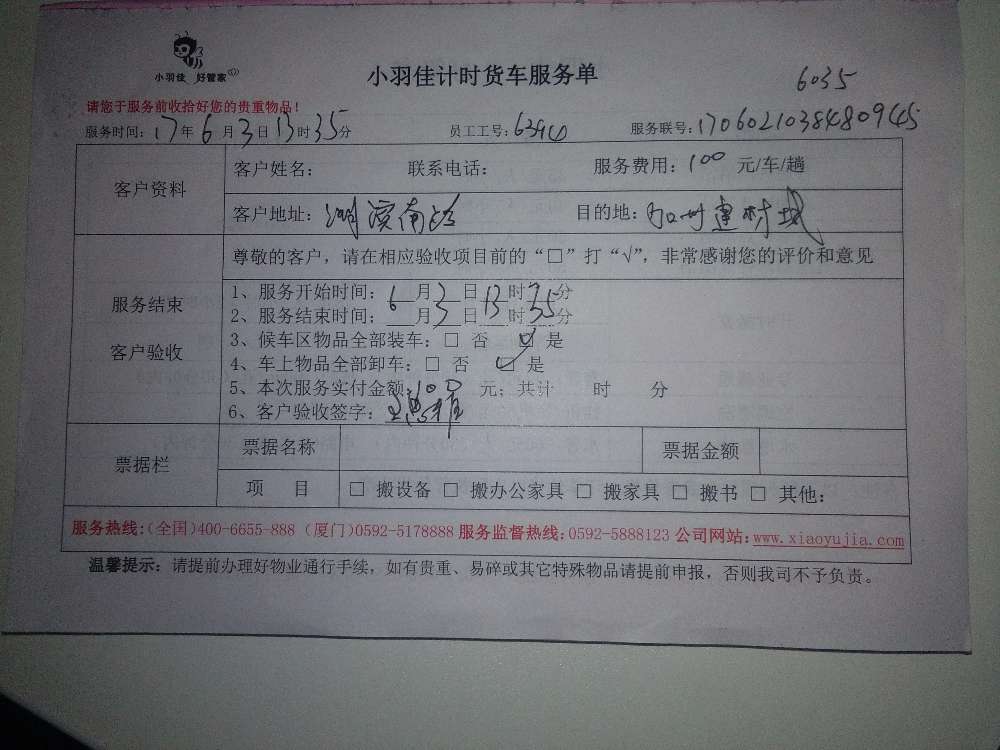 小羽佳 好管家
小羽佳计时货车服务单
6035
请您于服务前收拾好您的贵重物品!
服务时间: 17年6月3日13时35分 员工工号: 服务联号: 17060210384809945
客户资料
客户姓名: 联系电话: 服务费用: 100 元/车/趟
客户地址: 湖滨南路 目的地: 建材城
服务结束
客户验收
尊敬的客户,请在相应验收项目前的“□”打“√”,非常感谢您的评价和意见
1、服务开始时间: 6月3日13时35分
2、服务结束时间: 月 日 时 分
3、候车区物品全部装车: □ 否 ☑ 是
4、车上物品全部卸车: □ 否 ☑ 是
5、本次服务实付金额: 100 元; 共计 时 分
6、客户验收签字:
票据栏
票据名称 票据金额
项 目 □ 搬设备 □ 搬办公家具 □ 搬家具 □ 搬书 □ 其他:
服务热线:(全国)400-6655-888 (厦门)0592-5178888 服务监督热线:0592-5888123 公司网站:www.xiaoyujia.com
温馨提示: 请提前办理好物业通行手续,如有贵重、易碎或其它特殊物品请提前申报,否则我司不予负责。